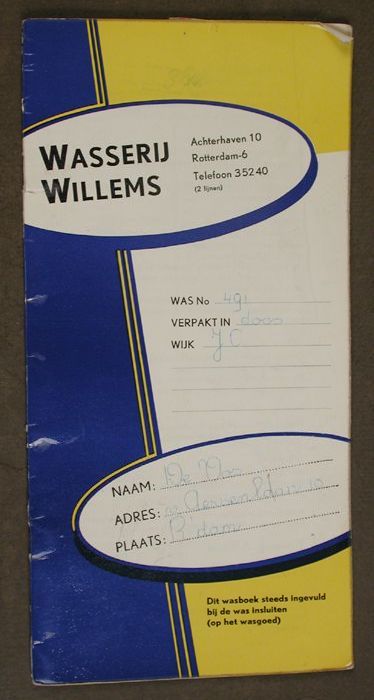 WASSERIJ
WILLEMS
Achterhaven 10
Rotterdam-6
Telefoon 35240
(2 lijnen)
WAS No 491
VERPAKT IN doos
WIJK
NAAM: De Vos
ADRES:
PLAATS: R'dam
Dit wasboek steeds ingevuld
bij de was insluiten
(op het wasgoed)